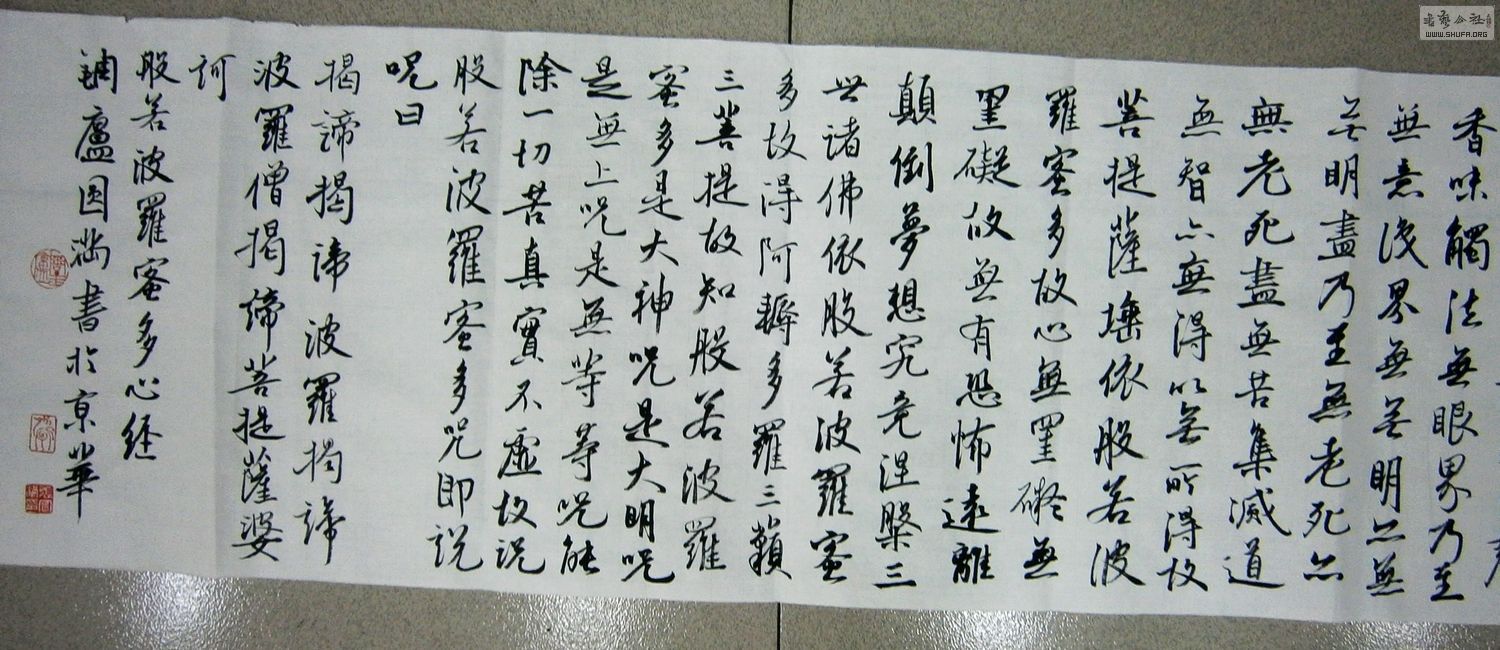 香味觸法無眼界乃至
無意识界無無明亦無
無明盡乃至無老死亦
無老死盡無苦集滅道
無智亦無得以無所得故
菩提薩埵依般若波
羅蜜多故心無罣礙無
罣礙故無有恐怖遠離
顛倒夢想究竟涅槃三
世諸佛依般若波羅蜜
多故得阿耨多羅三藐
三菩提故知般若波羅
蜜多是大神咒是大明咒
是無上咒是無等等咒能
除一切苦真實不虛故説
般若波羅蜜多咒即説
咒曰
揭諦揭諦波羅揭諦
波羅僧揭諦菩提薩婆
訶
般若波羅蜜多心经
廬書於京華
書藝公社
WWW.SHUFA.ORG